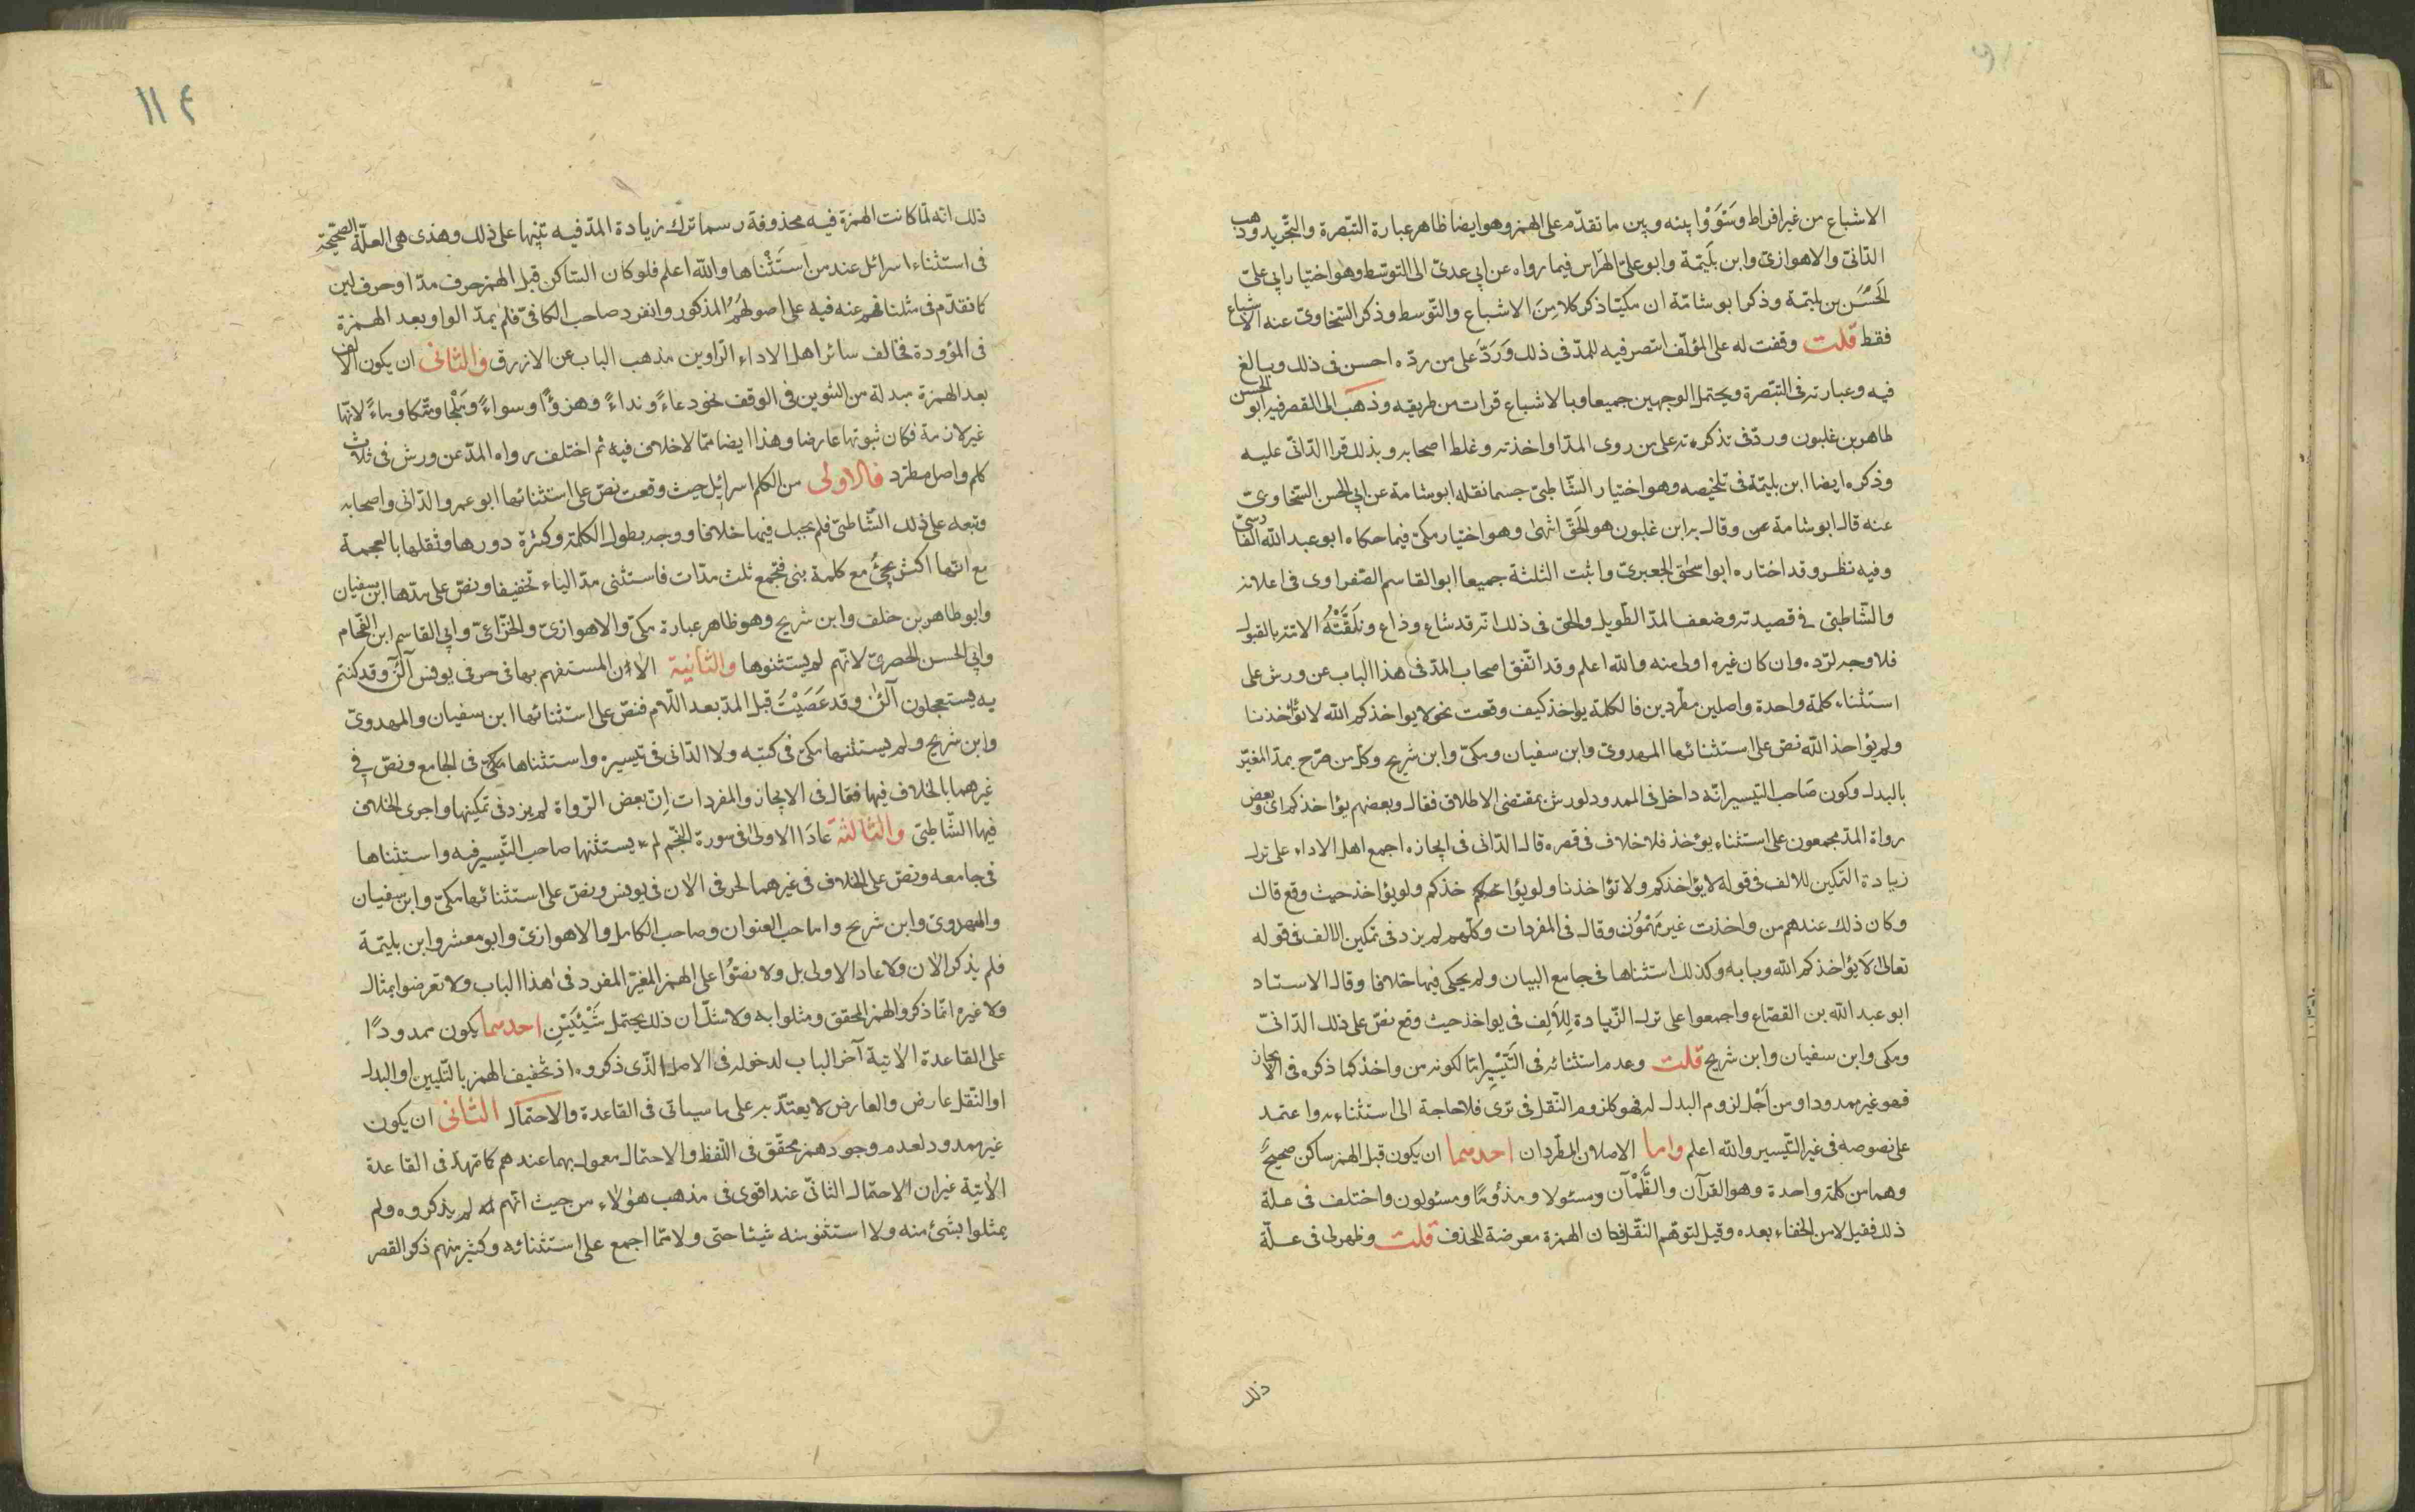 الاشباع من غير افراط وسَوَّوْا بينه وبين ما تقدّم على الهمز وهو ايضا ظاهر عبارة التبصرة والتجريد وذهب
الدّانىّ والاهوازىّ وابن بَلِيّمة وابو علىّ الهرّاس فيما رواه عن ابى عدىّ الى التوسّط وهو اختيار ابى علىّ
الحَسَن بن بليّمة وذكر ابو شامّة ان مكيّا ذكر كلا مِنَ الاشباع والتّوسط وذكر السّخاوىّ عنه الاشباع
فقط قلت وقفت له على المؤلّف انتصر فيه للمدّ فى ذلك وَرَدَّ على من ردّه احسن فى ذلك وبالغ
فيه وعبارته فى التبّصرة ويحتمل الوجهين جميعا وبالاشباع قرات من طريقه وذهب الى القصر فيه ابو الحسن
طاهر بن غلبون وردّ فى تذكرته على من روى المدّ او اخذ به وغلط اصحابه وبذلك قرا الدّانىّ عليه
وذكره ايضا ابن بليّمة فى تلخيصه وهو اختيار الشّاطبىّ حسبما نقله ابو شامة عن ابى الحسن السّخاوىّ
عنه قال ابو شامة وقال به ابن غلبون هو الحَقّ انتهى وهو اختيار مكىّ فيما حكاه ابو عبد الله الفاسىّ
وفيه نظر وقد اختاره ابو اسحٰق الجعبرىّ واثبت الثلثة جميعا ابو القاسم الصّفراوى فى اعلانه
والشّاطبىّ فى قصيدته وضعف المدّ الطّويل والحق فى ذلك انه قد شاع وذاع وتلقَّتْهُ الائمّة بالقبول
فلا وجه لردّه وان كان غيره اولى منه والله اعلم وقد اتّفق اصحاب المدّ فى هذا الباب عن ورش على
استثناء كلمة واحدة واصلين مطّردين فالكلمة يواخذ كيف وقعت نحو لا يواخذكم الله لا تؤاخذنا
ولو يؤاخذ الله نصّ على استثنائها المهدوىّ وابن سفيان ومكىّ وابن شريح وكل من صرّح بمدّ المغيّر
بالبدل وكون صَاحب التيسير انّه داخل فى الممدود لورش بمقتضى الاطلاق فقال وبعضهم يؤاخذكم اى وبعض
رواة المدّ مجمعون على استثناء يؤخذ فلا خلاف فى قصره قال الدّانى فى ايجازه اجمع اهل الاداء على ترك
زيادة التّمكين للالف فى قوله لا يؤاخذكم ولا تؤاخذنا ولو يؤاخذكم ولو يؤاخذ حيث وقع قال
وكان ذلك عندهم من واخذت غير مَهْمُوْن وقال فى المفردات وكلّهم لم يزد فى تمكين الالف فى قوله
تعالى لَا يُؤاخذكم الله وبابه وكذلك استثناها فى جامع البيان ولم يحكى فيها خلافا وقال الاستاد
ابو عبد الله بن القصّاع واجمعوا على ترك الزّيادة لِلْاَلِف فى يواخذ حيث وقع نصّ على ذلك الدّانىّ
ومكى وابن سفيان وابن شريح قلت وعدم استثنائه فى التَّيْسِير امّا لكونه من واخذ كما ذكره فى الايجاز
فهو غير ممدود او من اَجْل لزوم البدل له فهو كلزوم النّقل فى ترى فلا حاجة الى استثنائه واعتمد
على نصوصه فى غير التّيسير والله اعلم واما الاصلان المطّردان احدهما ان يكون قبل الهمز ساكن صحيحٌ
وهما من كلمة واحدة وهو القرآن والظَّمْآن ومسئولا ومذؤمًا ومسئولون واختلف فى علّة
ذلك فقيل لامن الخفاء بعده وقيل لتوهّم النّقل فكان الهمزة معرضة للحذف قلت وظهر لى فى علّة
ذلك
١١٤
ذلك انه لمّا كانت الهمزة فيه محذوفة رسما ترك زيادة المدّ فيه تنبيها على ذلك وهذى هى العلّة الصّحيحة
فى استثناء اسرائل عند من استَثْناها والله اعلم فلو كان السّاكن قبل الهمز حرف مدّ او حرف لين
كما تقدّم فى مثلنا فهم عنه فيه على اصولهمُ المذكور وانفرد صاحب الكافىّ فلم يمدّ الواو بعد الهمزة
فى المؤودة فخالف سائر اهل الاداء الرّاوين مذهب الباب عن الازرق والثانى ان يكون الالف
بعد الهمزة مبدلة من التنوين فى الوقف نحو دعاءً ونداءً وهزؤًا وسواءً ومَلْجا ومتّكا وماءً لانّها
غير لازمة فكان ثبوتها عارضا وهذا ايضا ممّا لا خلاف فيه ثم اختلف رواه المدّ عن ورش فى ثلاث
كلم واصل مطّرد فالاولى من الكلم اسرائيل حيث وقعت نصّ على استثنائها ابو عمرو الدّانى واصحابه
وتبعه على ذلك الشّاطبىّ فلم يحك فيها خلافا ووجه بطول الكلمة وكثرة دورها وثقلها بالعجمة
مع انّها اكثر يجئ مع كلمة بنى فتجمع ثلث مدّات فاستثنى مدّ الياء تخفيفا ونصّ على مدّها ابن سفيان
وابو طاهر بن خلف وابن شريح وهو ظاهر عبارة مكىّ والاهوازىّ والخزّاعىّ وابى القاسم ابن الفحّام
وابى الحسن الحصرىّ لانّهم لم يستثنوها والثانية الاٰن المستفهم بها فى حرفى يونس آلئٰن وقد كنتم
به يستعجلون آلئن وقد عَصَيْتَ قبل المدّ بعد اللّام فنصّ على استثنائها ابن سفيان والمهدوىّ
وابن شريح ولم يستثنها مكىّ فى كتبه ولا الدّانى فى تيسيره واستثناها مكىّ فى الجامع ونصّ فى
غيرهما بالخلاف فيها فقال فى الايجاز والمفردات اِنّ بعض الرّواة لم يزد فى تمكينها واجرى الخلاف
فيها الشّاطبىّ والثالثة عادَا الاولىٰ فى سورة النّجم لم يستثنها صاحب التّيسير فيه واستثناها
فى جامعه ونصّ على الخلاف فى غيرهما لحرفى الاٰن فى يونس ونصّ على استثنائها مكىّ وابن سفيان
والمهدوىّ وابن شريح واما صاحب العنوان وصاحب الكامل والاهوازىّ وابو معشر وابن بليّمة
فلم يذكر الاٰن ولا عادا الاولى بل ولا نصّوُا على الهمز المغيّر المفرد فى هٰذا الباب ولا تعرضوا بمثال
ولا غيره انّما ذكروا الهمز المحقق ومثلوا به ولا شكّ ان ذلك يحتمل شَيْئَيْنِ احدهما يكون ممدودًا
على القاعدة الاٰتية آخر الباب لدخوله فى الاصل الّذى ذكروه اذ تخفيف الهمز بالتّليين او البدل
او النّقل عارض والعارض لا يعتدّ به على ما سياتى فى القاعدة والاحتمال الثانى ان يكون
غير ممدود لعدم وجود همز محقّق فى اللّفظ والاحتمال معمول بهما عندهم كما تمهّد فى القاعدة
الاٰتية غير ان الاحتمال الثانىّ عند اقوى فى مذهب هٰؤلاء من حيث انّهم لم يذكروه ولم
يمثلوا بشئ منه ولا استثنو منه شيئا حتى ولا ممّا اجمع على استثنائه وكثير منهم ذكر القصر